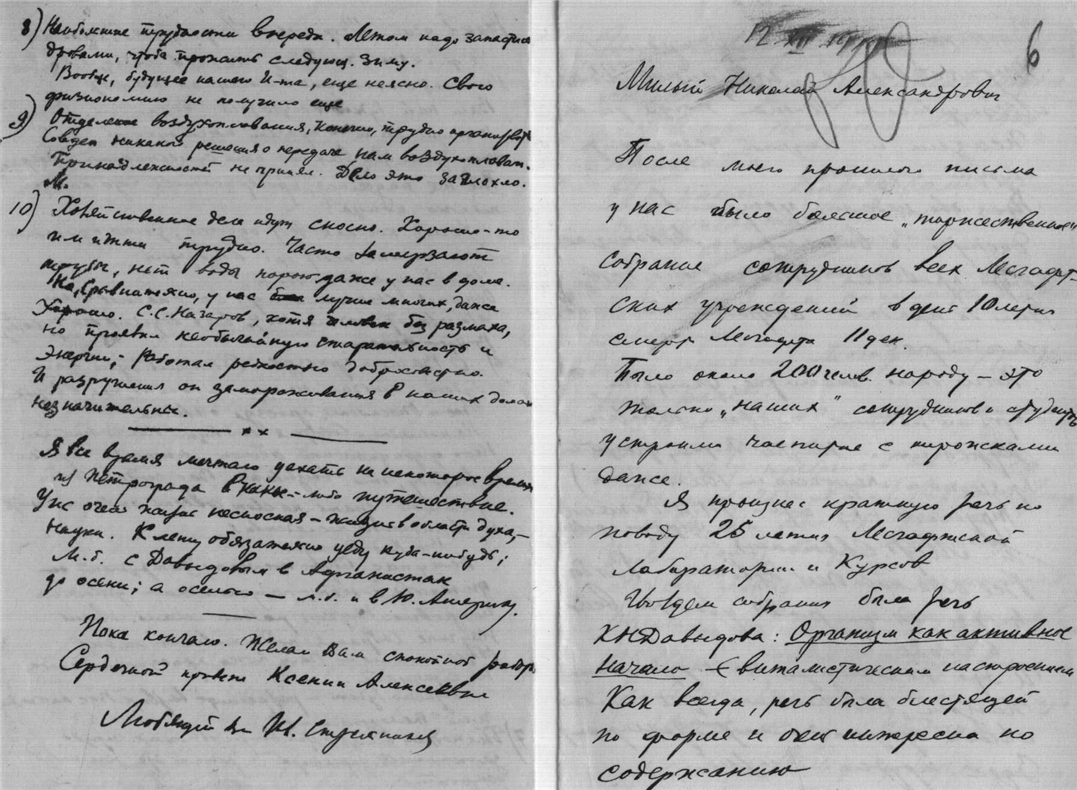 8) Наибольшие трудности впереди. Летом надо запастись
дровами, чтобы прожить следующ. зиму.
Вообще, будущее нашего И-та, еще неясно. Своего
физиономию не получило еще
9) Отделение воздухоплавания, конечно, трудно организовать
Совдеп никакого решения о передаче нам воздухоплават.
принадлежностей не принял. Дело это заглохло.
10) Хозяйственные дела идут сносно. Хорошо-то
им идти трудно. Часто замерзают
трубы, нет воды порою даже у нас в доме.
Но, сравнительно, у нас лучше многих, даже
хорошо. С.С. Назаров, хотя человек без размаха,
но проявил необычайную старательность и
энергии; работал редкостно добросовестно.
И разрушения от замораживания в наших домах
незначительны.
Я все время мечтаю уехать на некоторое время
из Петрограда в какое-либо путешествие.
Уж очень жизнь несносная – жизнь в области духа,
науки. К лету обязательно уеду куда-нибудь;
М.б. с Давыдовым в Афганистан
до осени; а осенью – м.б. и в Ю. Америку.
Пока кончаю. Желаю Вам спокойной работы
Сердечной привет Ксении Алексеевне
Любящий Вас И. Стрельников
6
12 XII 19
Милый Николай Александрович
После моего прошлого письма
у нас было большое „торжественное"
собрание сотрудников всех Лесгафт-
ских учреждений в день 10 летия
смерти Лесгафта 11 дек.
Было около 200 челов. народу – это
только „наших" сотрудников и студенты
устроили чаепитие с пирожками
даже.
Я произнес краткую речь по
поводу 25 летия Лесгафтской
Лаборатории и Курсов
Гвоздем собрания была речь
К.Н. Давыдова: Организм как активное
начало – с виталистическим настроением
Как всегда, речь была блестящей
по форме и интересна по
содержанию